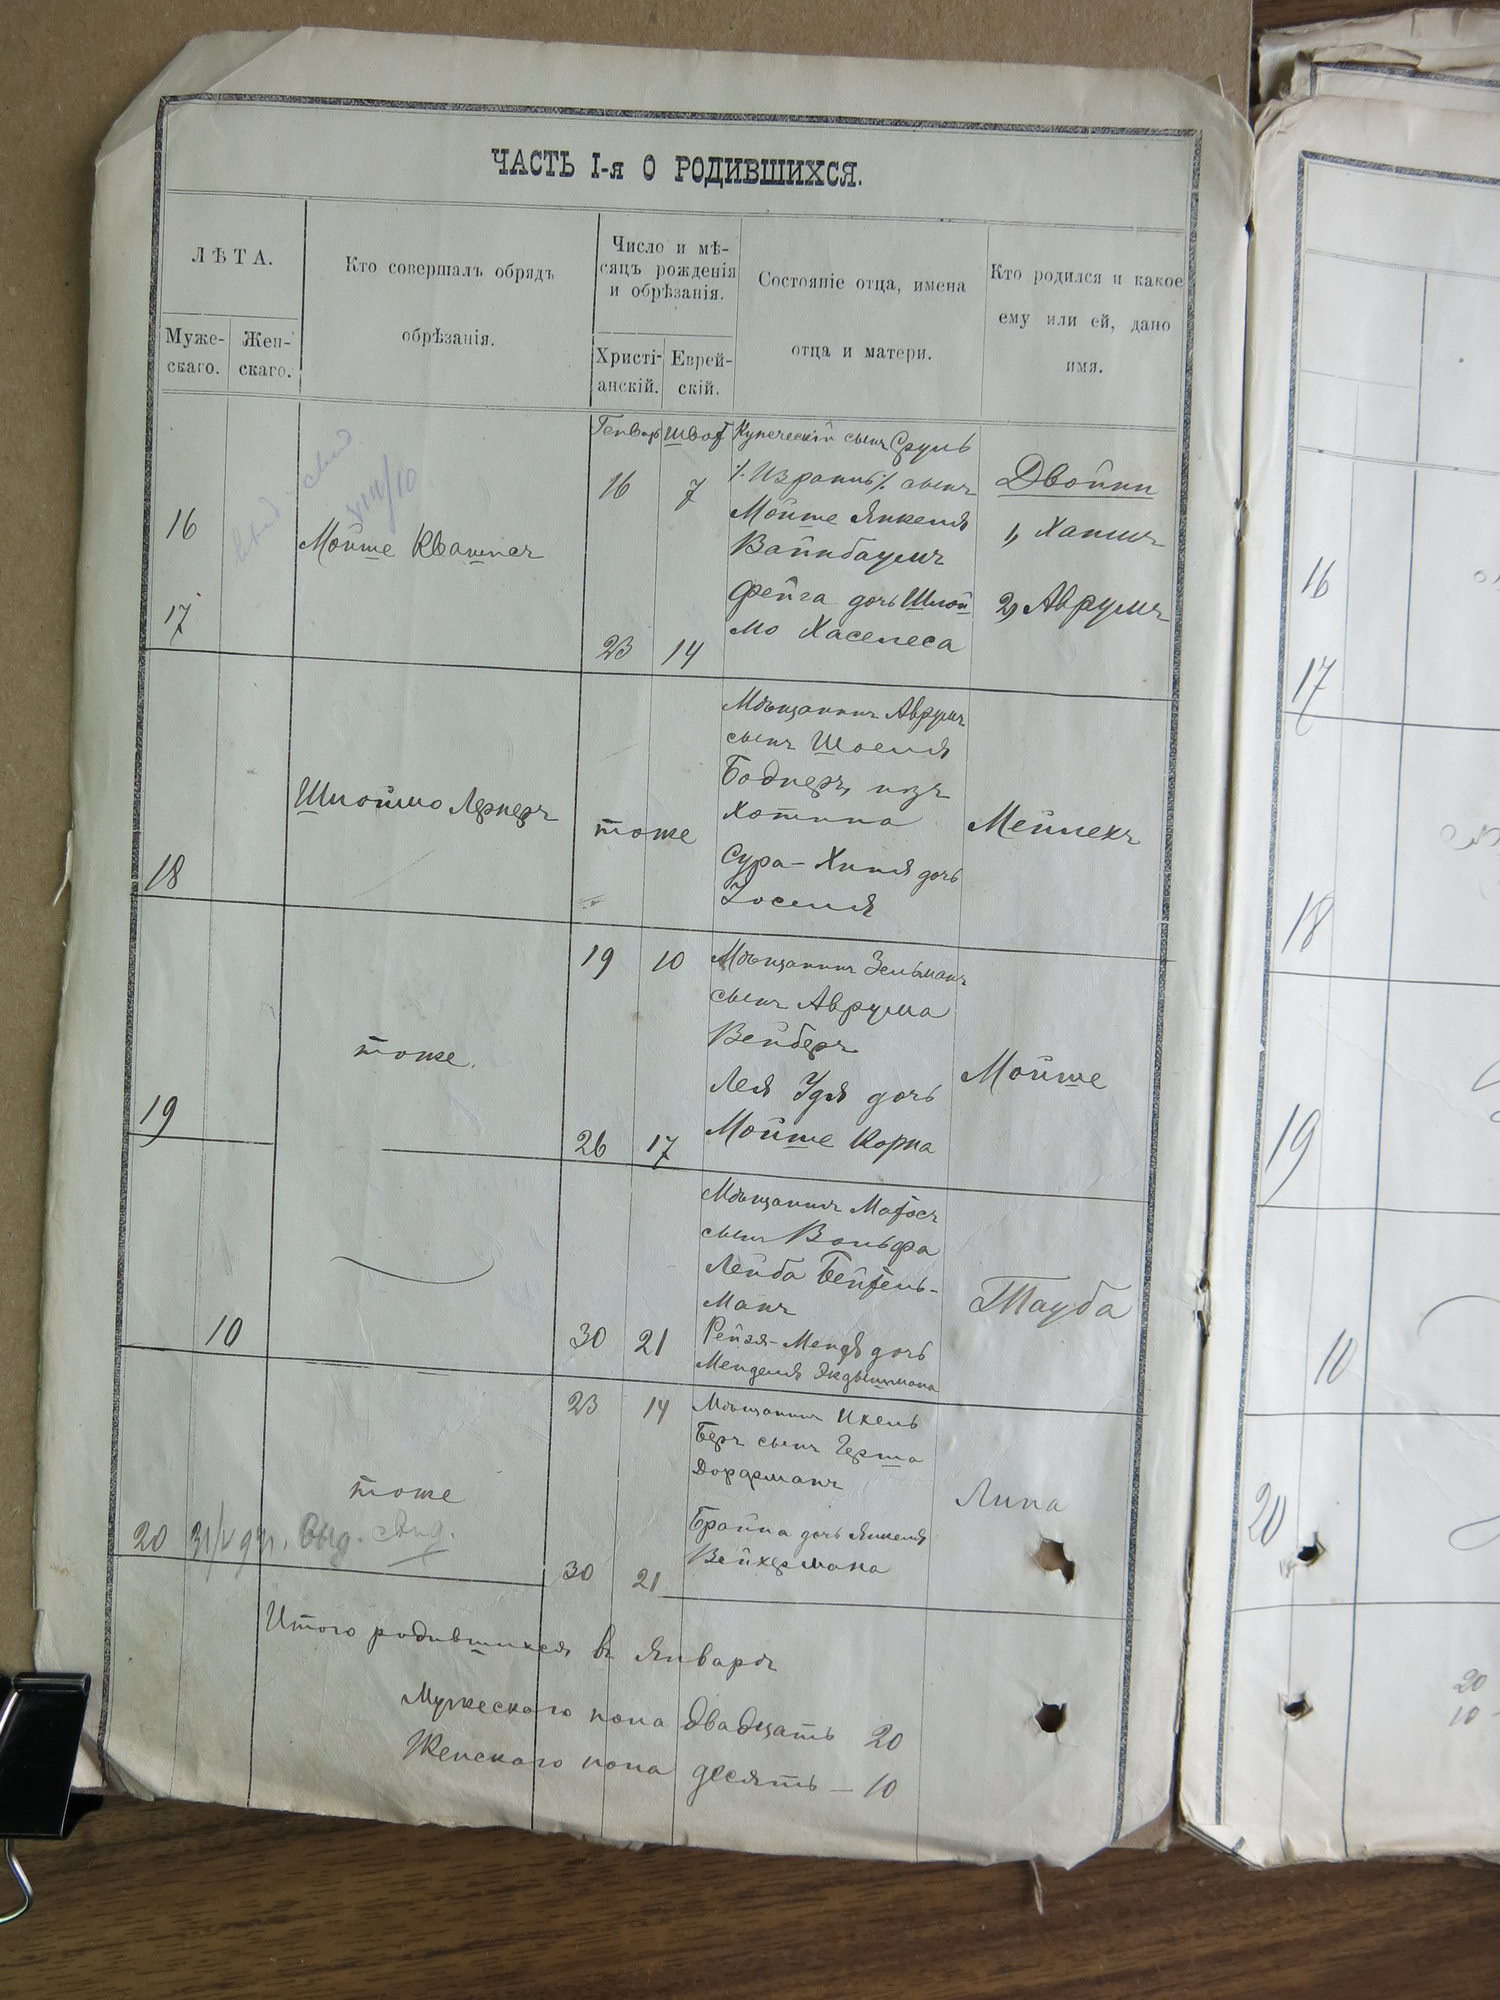 ЧАСТЬ I-я О РОДИВШИХСЯ.
ЛѢТА.
Муже-
скаго.
Жен-
скаго.
Кто совершалъ обрядъ
обрѣзанія.
Число и мѣ-
сяцъ рожденія
и обрѣзанія.
Христі-
анскій.
Еврей-
скій.
Состояніе отца, имена
отца и матери.
Кто родился и какое
ему или ей, дано
имя.
16
17
Мойше Квашня
Генваръ
Шват
16
7
23
14
Купеческій сынъ Сруль
٪ Израиль ٪ сынъ
Мойше Янкеля
Вайнбаумъ
Фейга дочь Шлой
мо Хаселеса
Двойни
1, Хаимъ
2, Аврумъ
18
Шлоймо Лернеръ
тоже
Мѣщанинъ Аврумъ
сынъ Шоеля
Боднеръ, изъ
Хотина
Сура-Хиня дочь
Іоселя
Мейлехъ
19
тоже.
19
10
26
17
Мѣщанинъ Зельманъ
сынъ Аврума
Вейберъ
Лея Удя дочь
Мойше Корна
Мойше
10
30
21
Мѣщанинъ Матосъ
сынъ Вольфа
Лейба Бейтель-
манъ
Рейзя-Мендя дочь
Менделя
Тауба
20
31/V 931. выд. свид.
тоже
23
14
30
21
Мѣщанинъ Ихель
Беръ сынъ Герша
Дорфманъ
Брайна дочь Янкеля
Вейхермана
Липа
Итого родившихся въ Январѣ
Мужескаго пола двадцать 20
Женскаго пола десять — 10
16
17
18
19
10
20
20
10 -